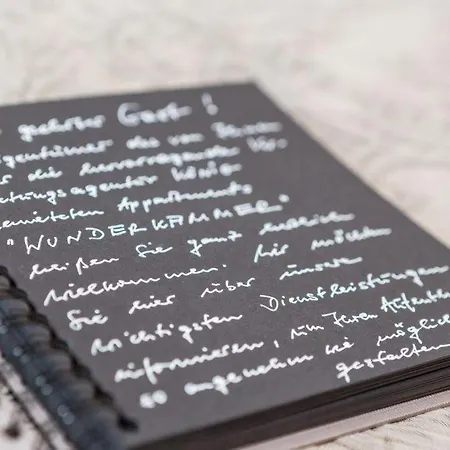 geehrter Gast !
Eigentümer des von Ihnen
die hervorragende Ver-
mietungsagentur König
gemieteten Appartements
"WUNDERKAMMER"
heißen Sie ganz herzlich
willkommen. Wir möchten
Sie hier über unsere
wichtigsten Dienstleistungen
informieren, um Ihren Aufenthalt
so angenehm wie möglich
gestalten